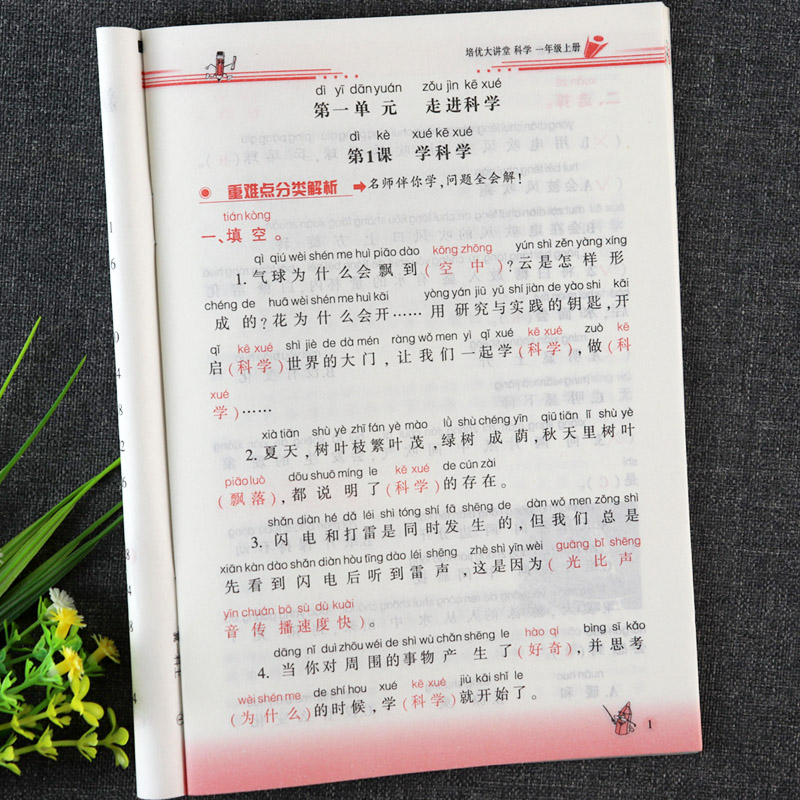 培优大讲堂 科学 一年级上册
dì yī dānyuán zǒu jìn kē xué
第一单元 走进科学
dì kè xué kē xué
第1课 学科学
重难点分类解析 名师伴你学,问题全会解!
tián kòng
一、填空。
qì qiú wèi shén me huì piāo dào kōng zhōng yún shì zěn yàng xíng
1. 气球为什么会飘到(空中)?云是怎样形
chéng de huā wèi shén me huì kāi yòng yán jiū yǔ shí jiàn de yào shi kāi
成的?花为什么会开……用研究与实践的钥匙,开
qǐ kē xué shì jiè de dà mén ràng wǒ men yì qǐ xué kē xué zuò kē
启(科学)世界的大门,让我们一起学(科学),做(科
xué
学)……
xià tiān shù yè zhī fán yè mào lǜ shù chéng yīn qiū tiān lǐ shù yè
2. 夏天,树叶枝繁叶茂,绿树成荫,秋天里树叶
piāo luò dōu shuō míng le kē xué de cún zài
(飘落),都说明了(科学)的存在。
shǎn diàn hé dǎ léi shì tóng shí fā shēng de dàn wǒ men zǒng shì
3. 闪电和打雷是同时发生的,但我们总是
xiān kàn dào shǎn diàn hòu tīng dào léi shēng zhè shì yīn wèi guāng bǐ shēng
先看到闪电后听到雷声,这是因为(光比声
yīn chuán bō sù dù kuài
音传播速度快)。
dāng nǐ duì zhōu wéi de shì wù chǎn shēng le hào qí bìng sī kǎo
4. 当你对周围的事物产生了(好奇),并思考
wèi shén me de shí hou xué kē xué jiù kāi shǐ le
(为什么)的时候,学(科学)就开始了。
1